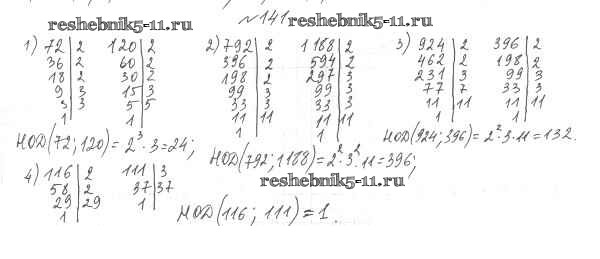 №141
reshebnik5-11.ru
reshebnik5-11.ru
1) 72|2 120|2
36|2 60|2
18|2 30|2
9|3 15|3
3|3 5|5
1| 1|
НОД(72;120)=2³·3=24;
2) 792|2 1188|2
396|2 594|2
198|2 297|3
99|3 99|3
33|3 33|3
11|11 11|11
1| 1|
НОД(792;1188)=2²·3²·11=396;
3) 924|2 396|2
462|2 198|2
231|3 99|3
77|7 33|3
11|11 11|11
1| 1|
НОД(924;396)=2²·3·11=132.
reshebnik5-11.ru
4) 116|2 111|3
58|2 37|37
29|29 1|
1|
НОД(116; 111)=1.